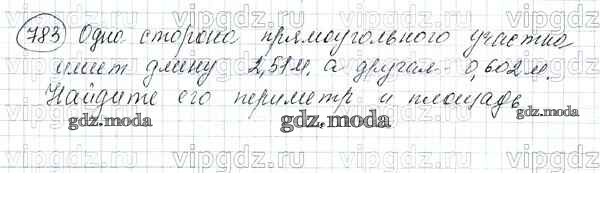 783 Одна сторона прямоугольного участка
имеет длину 2,51м, а другая - 0,602 м.
Найдите его периметр и площадь
gdz.moda gdz.moda gdz.moda
vipgdz.ru vipgdz.ru vipgdz.ru vipgdz.ru